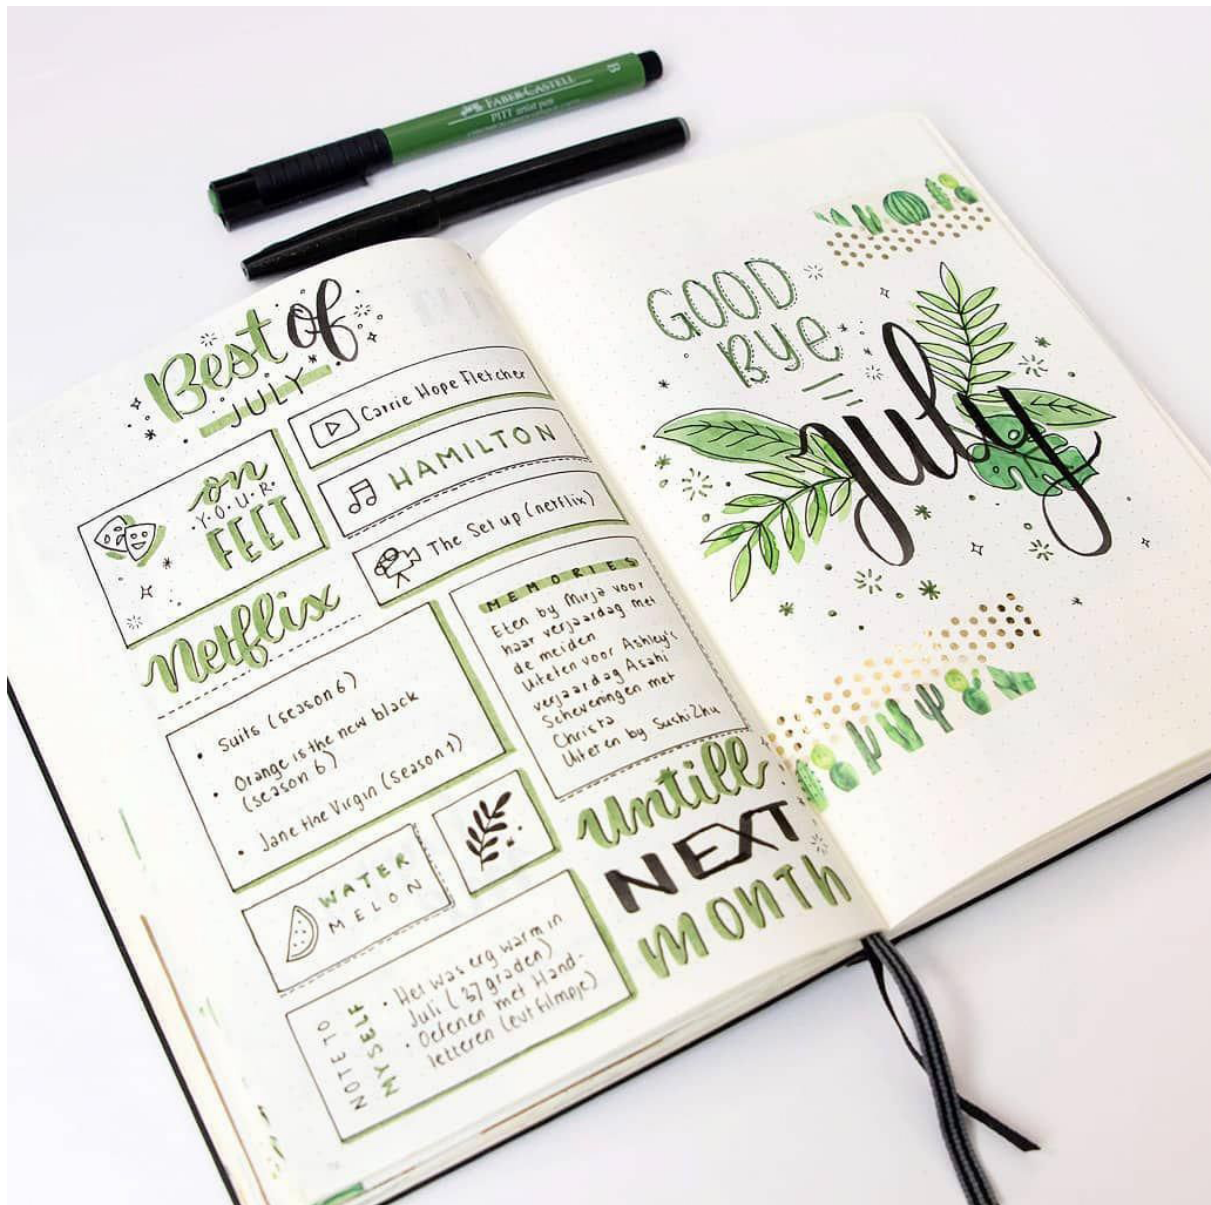 FABER-CASTELL
PITT artist pen
B
Best of
JULY
on
Y.O.U.R.
FEET
Carrie Hope Fletcher
HAMILTON
The Set up (netflix)
Netflix
• Suits (season 6)
• Orange is the new black
(season 6)
• Jane the Virgin (Season 1)
MEMORIES
Eten by Mirja voor
haar verjaardag met
de meiden
Uiteten voor Ashley's
verjaardag Asahi
Scheveningen met
Christa
Uiteten by SushiZhu
WATER
MELON
NOTE TO
MYSELF
• Het was erg warm in
Juli (37 graden)
• Oefenen met Hand-
letteren (evt filmpje)
Untill
NEXT
MONTH
GOOD
Bye
July